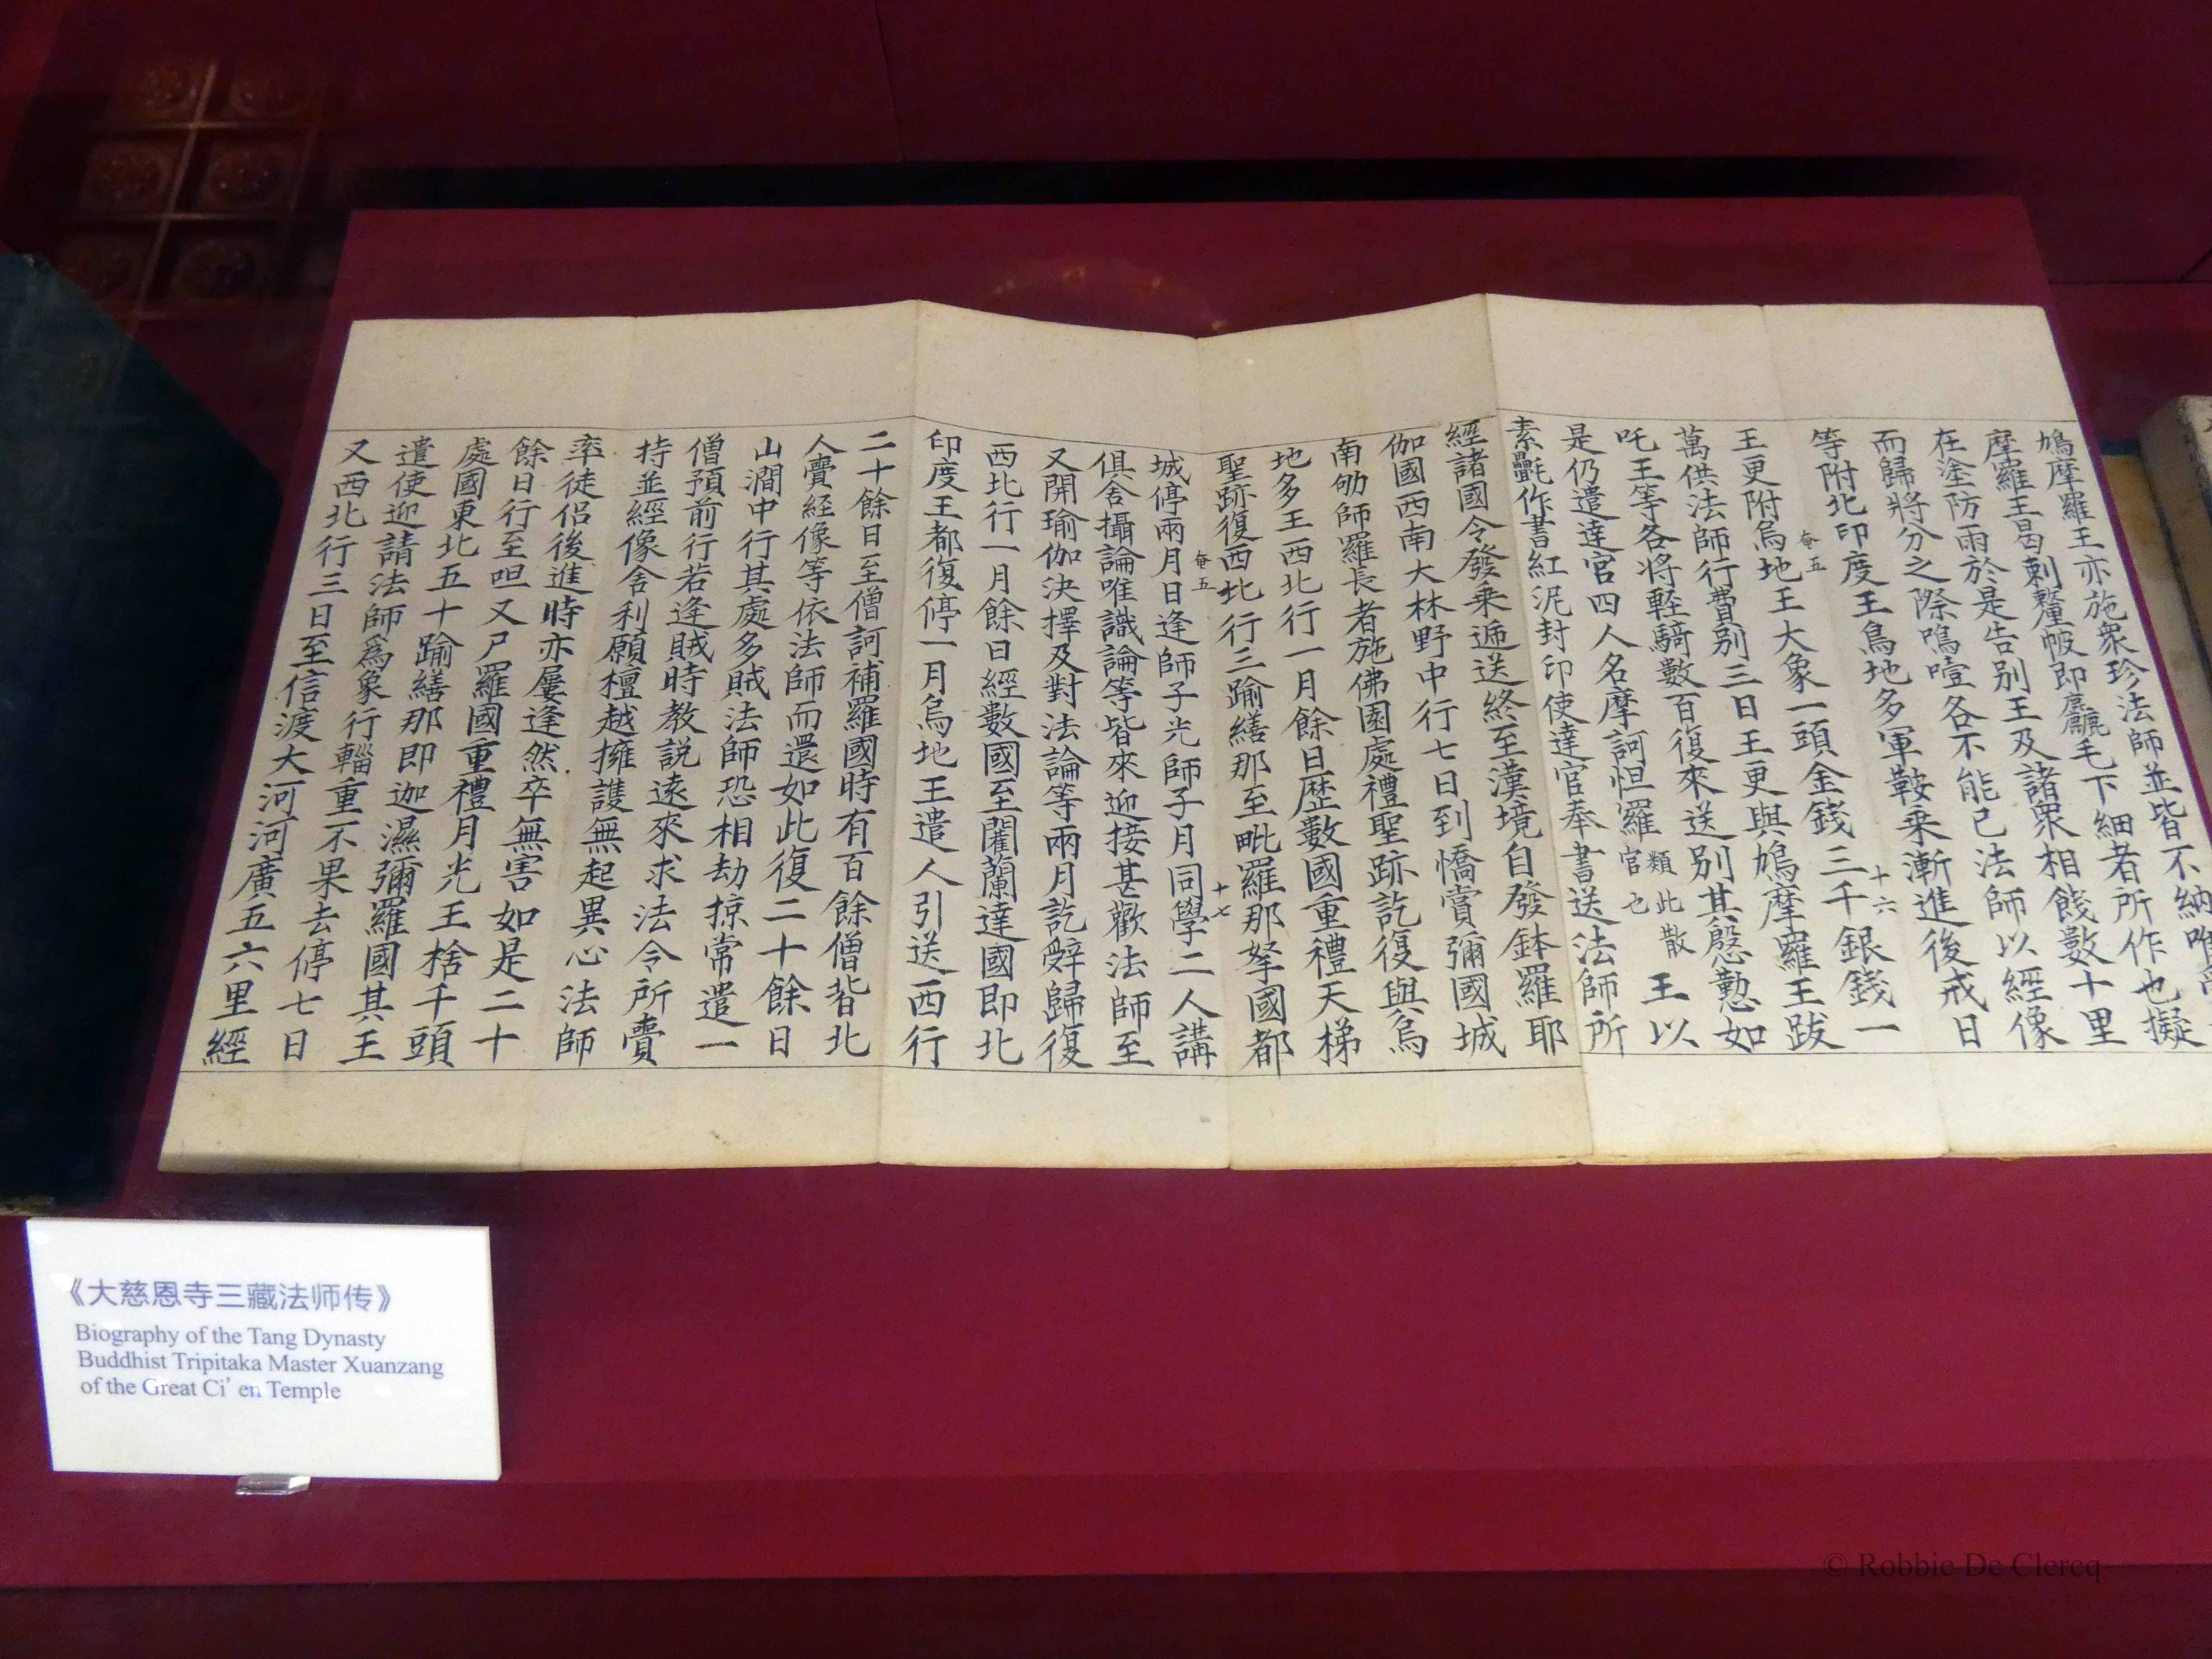 鳩摩羅王亦施衆珍法師並皆不納唯
摩羅王曷剌釐帔即麤毛下細者所作也擬
在塗防雨於是告別王及諸衆相餞數十里
而歸將分之際嗚噎各不能已法師以經像
等附北印度王烏地多軍鞍乘漸進後戒日
王更附烏地王大象一頭金錢三千銀錢一
萬供法師行費別三日王更與鳩摩羅王跋
吒王等各將輕騎數百復來送別其慇懃如
是仍遣達官四人名摩訶怛羅類此散官也王以
素㲲作書紅泥封印使達官奉書送法師所
經諸國令發乘遞送終至漢境自發鉢羅耶
伽國西南大林野中行七日到憍賞彌國城
南劬師羅長者施佛園處禮聖跡訖復與烏
地多王西北行一月餘日歷數國重禮天梯
聖跡復西北行三踰繕那至毗羅那拏國都
城停兩月日逢師子光師子月同學二人講
俱舍攝論唯識論等皆來迎接甚歡法師至
又開瑜伽決擇及對法論等兩月訖辭歸復
西北行一月餘日經數國至闍蘭達國即北
印度王都復停一月烏地王遣人引送西行
二十餘日至僧訶補羅國時有百餘僧皆北
人賷経像等依法師而還如此復二十餘日
山澗中行其處多賊法師恐相劫掠常遣一
僧預前行若逢賊時教説遠來求法今所賷
持並經像舍利願檀越擁護無起異心法師
率徒侶後進時亦屢逢然卒無害如是二十
餘日行至呾又尸羅國重禮月光王捨千頭
處國東北五十踰繕那即迦濕彌羅國其王
遣使迎請法師爲象行輜重不果去停七日
又西北行三日至信渡大河河廣五六里經
奄五
十六
奄五
十七
《大慈恩寺三藏法师传》
Biography of the Tang Dynasty
Buddhist Tripitaka Master Xuanzang
of the Great Ci' en Temple
© Robbie De Clercq